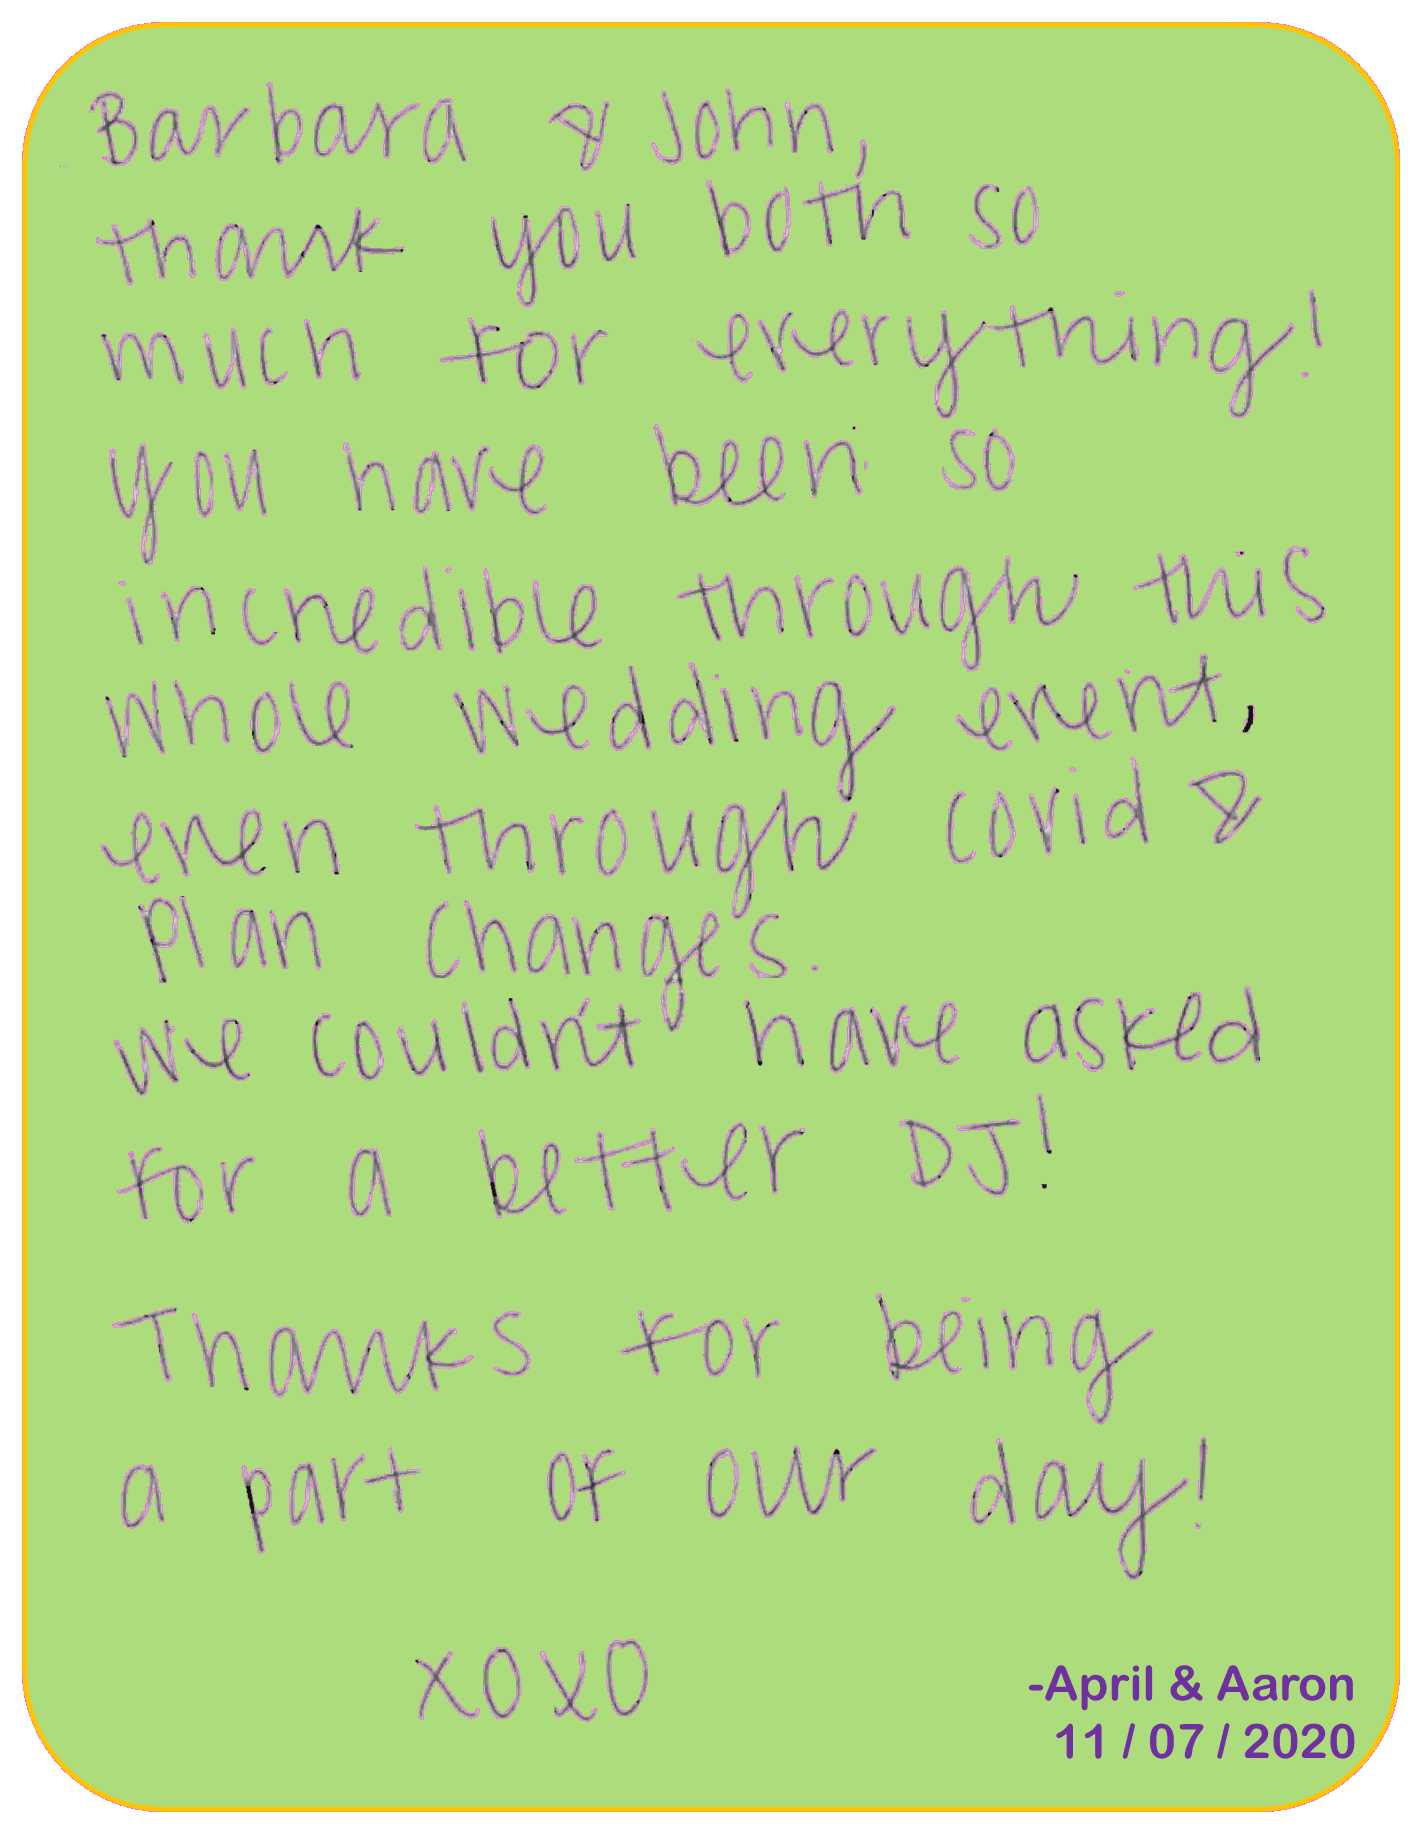 Barbara & John,
thank you both so
much for everything!
you have been so
incredible through this
whole wedding event,
even through covid &
plan changes.
we couldn't have asked
for a better DJ!
Thanks for being
a part of our day!
xoxo
-April & Aaron
11 / 07 / 2020